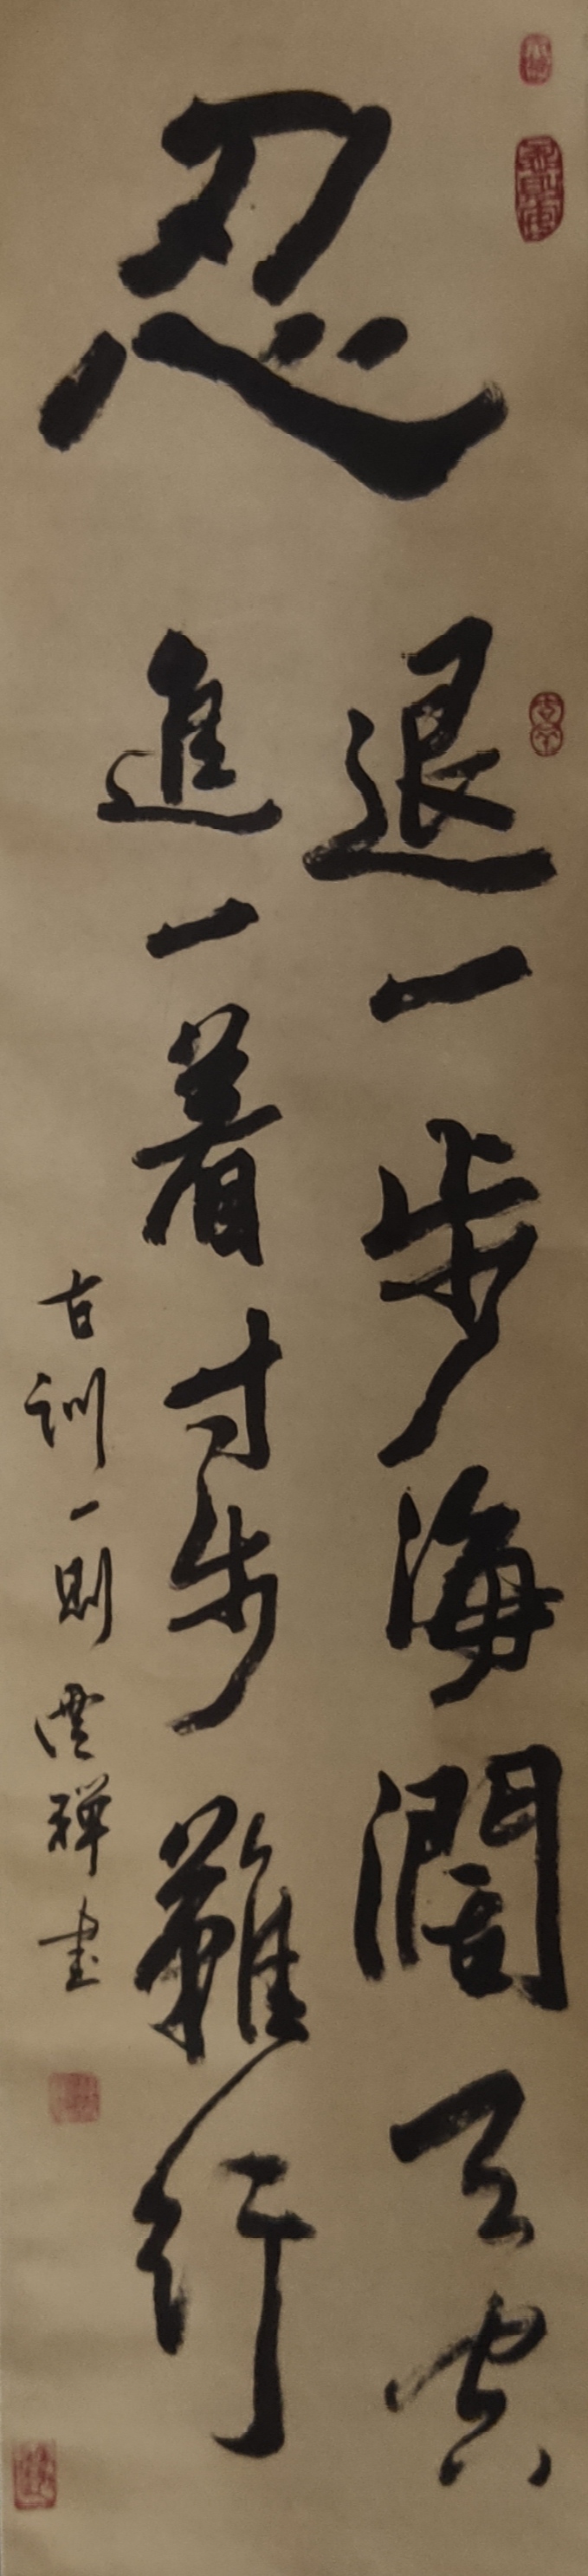 忍
退一步海濶天空
進一着寸步難行
古訓一則 禪書